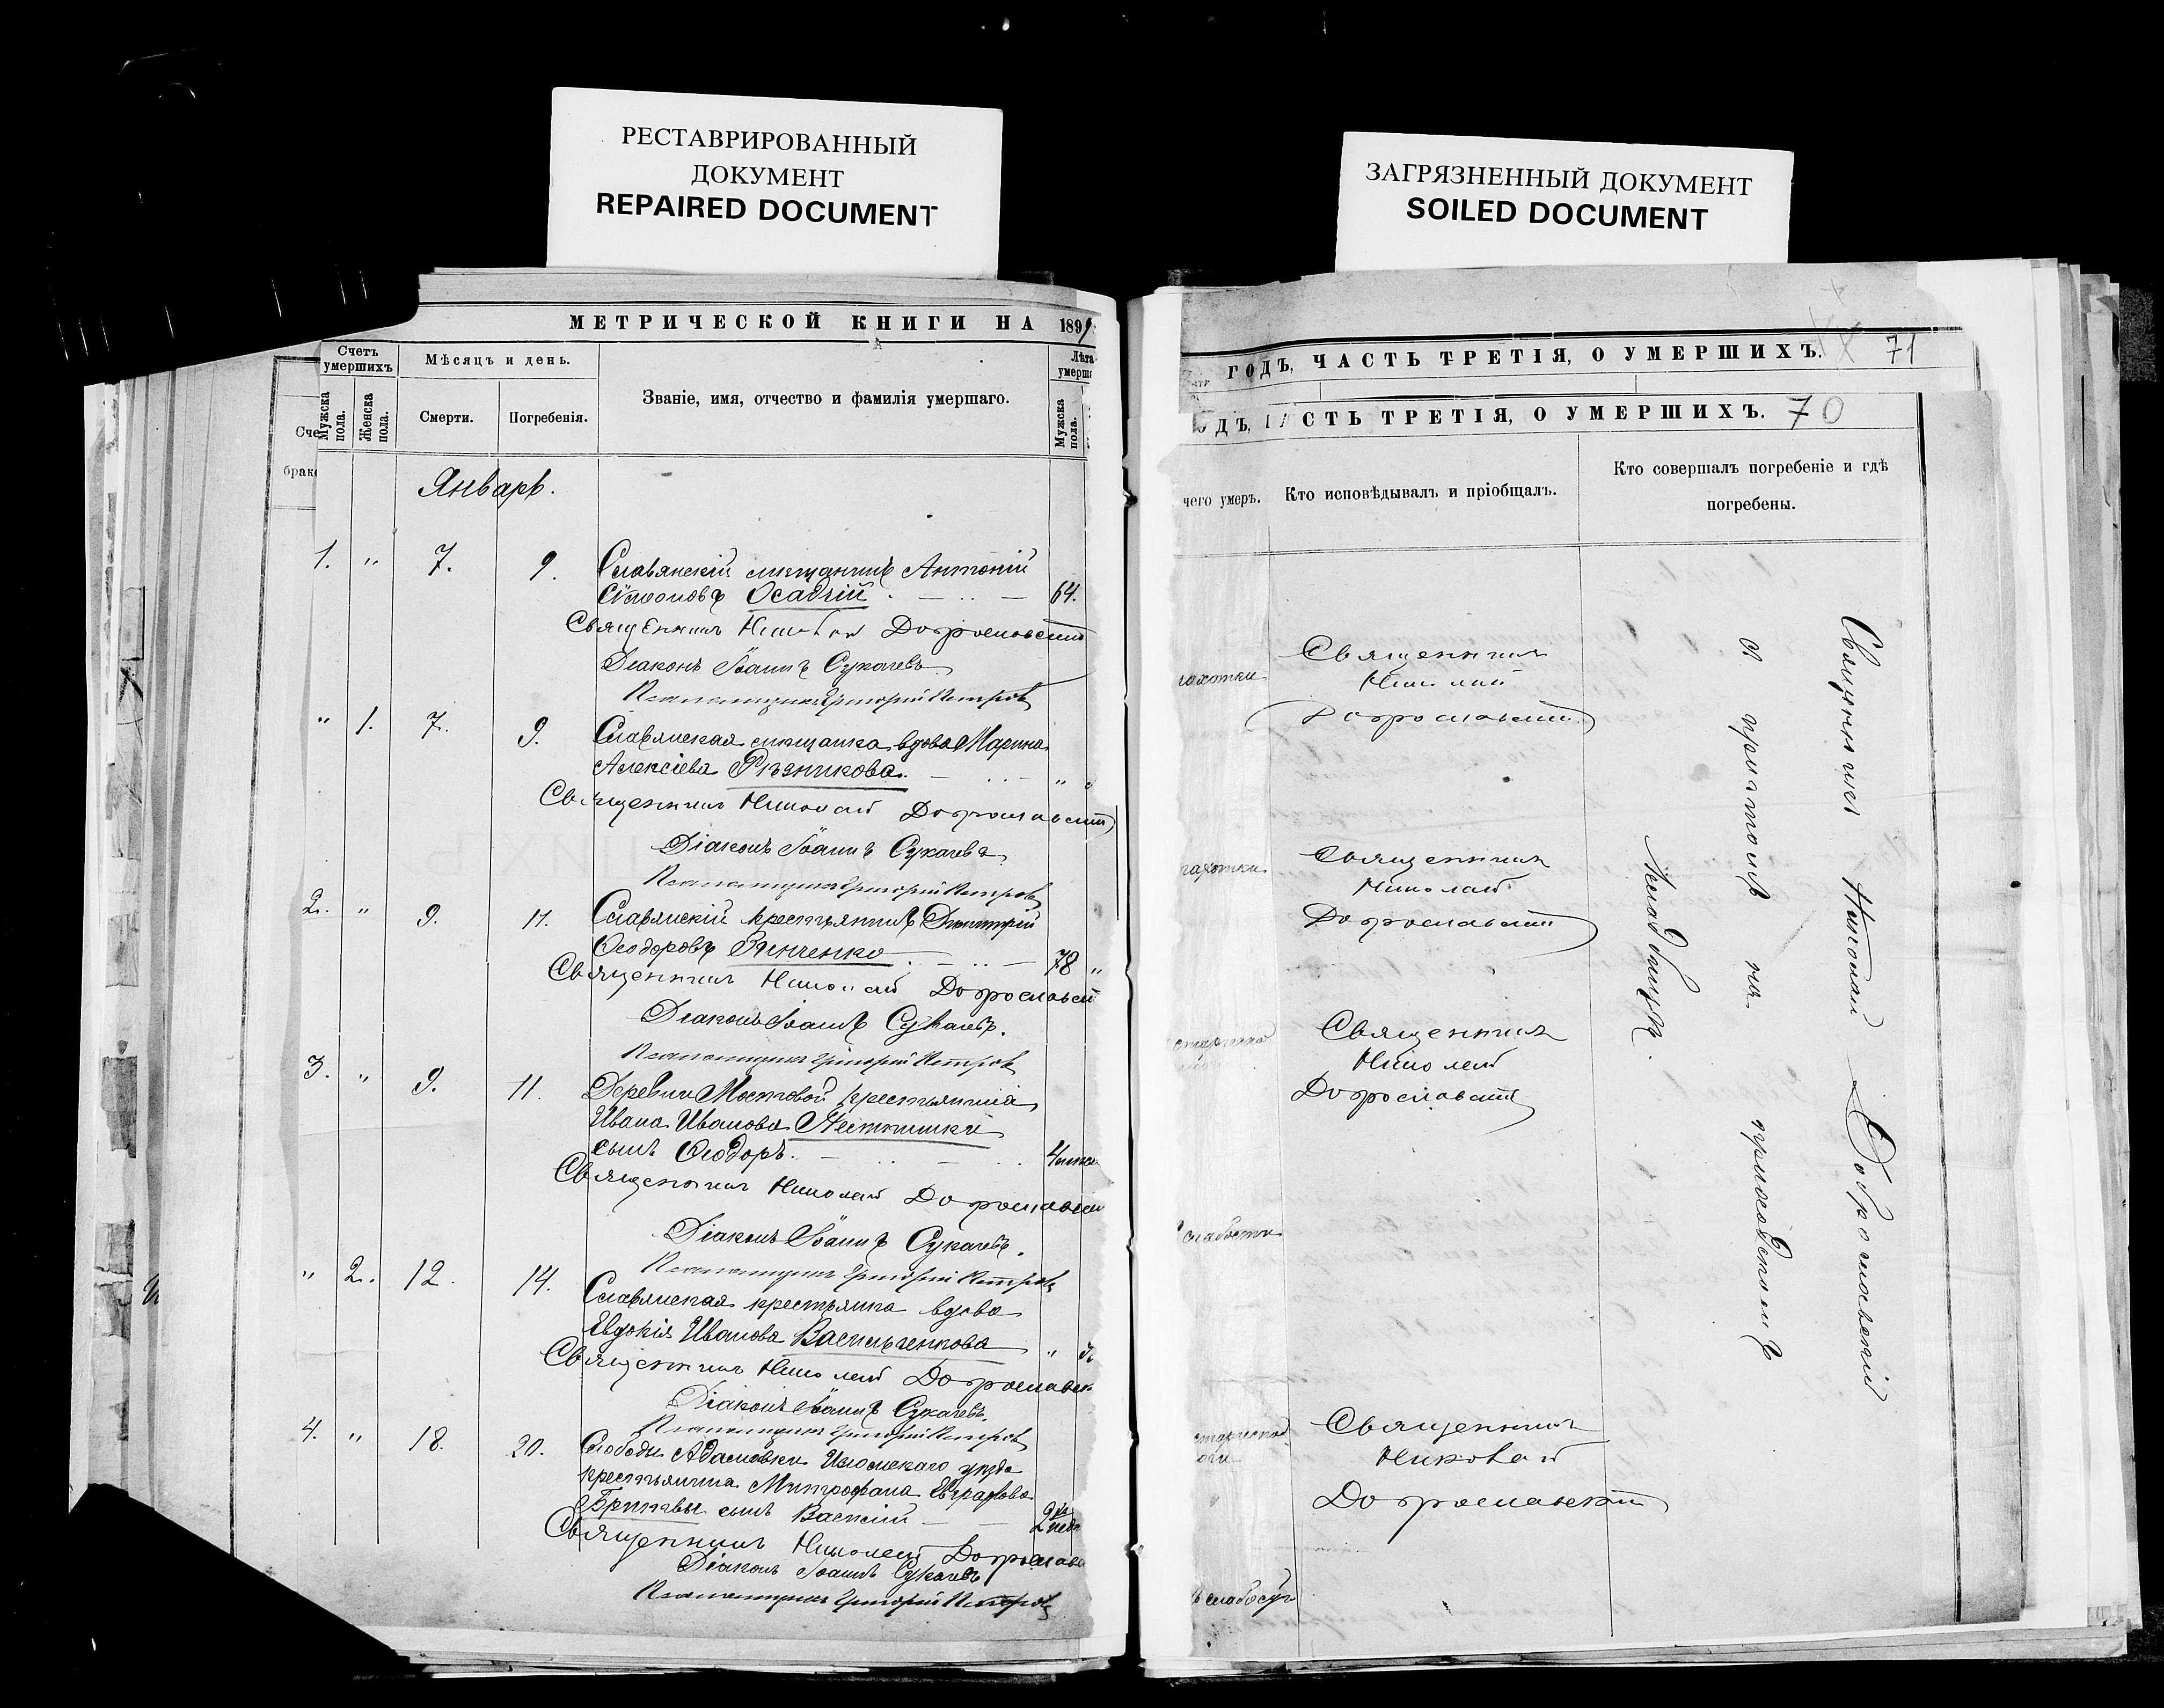 РЕСТАВРИРОВАННЫЙ
ДОКУМЕНТ
REPAIRED DOCUMENT
ЗАГРЯЗНЕННЫЙ ДОКУМЕНТ
SOILED DOCUMENT
МЕТРИЧЕСКОЙ КНИГИ НА 189
Счетъ умершихъ
Мѣсяцъ и день.
Званіе, имя, отчество и фамилія умершаго.
Лѣта
умерш
Мужска пола.
Женска пола.
Смерти.
Погребенія.
Мужска пола.
Сче
брако
Январь.
1. " 7. 9. Славянскій мѣщанинъ Антоній
Осадчій 64.
Священникъ Николай Доброславскій
Діаконъ Іоаннъ Сукачевъ
Псаломщикъ Григорій Петровъ
" 1. 7. 9. Славянская мѣщанка вдова Марина
Алексіева Рѣзникова "
Священникъ Николай Доброславскій
Діаконъ Іоаннъ Сукачевъ
Псаломщикъ Григорій Петровъ
2. " 9. 11. Славянскій крестьянинъ Димитрій
Ѳеодоровъ Зинченко 78 "
Священникъ Николай Доброславскій
Діаконъ Іоаннъ Сукачевъ.
Псаломщикъ Григорій Петровъ
3. " 9. 11. Деревни Мостовой крестьянина
Ивана Иванова
сынъ Ѳеодоръ. 4
Священникъ Николай Доброславск
Діаконъ Іоаннъ Сукачевъ.
Псаломщикъ Григорій Петровъ
" 2. 12. 14. Славянская крестьянка вдова
Евдокія Иванова Васильченкова "
Священникъ Николай Доброславск
Діаконъ Іоаннъ Сукачевъ.
Псаломщикъ Григорій Петровъ
4. " 18. 20. Слободы Адамовки Изюмскаго уѣзда
крестьянина Митрофана Евграфова
сынъ Василій 2
Священникъ Николай Доброслав
Діаконъ Іоаннъ Сукачевъ
Псаломщикъ Григорій Петровъ
ГОДЪ, ЧАСТЬ ТРЕТІЯ, О УМЕРШИХЪ. 71
ДЪ, СТЬ ТРЕТІЯ, О УМЕРШИХЪ. 70
чего умеръ.
Кто исповѣдывалъ и пріобщалъ.
Кто совершалъ погребеніе и гдѣ
погребены.
Священникъ
Николай
Доброславскій
Священникъ
Николай
Доброславскій
Священникъ
Николай
Доброславскій
слабости
Священникъ
Николай
Доброславскій
Священникъ Николай Доброславскій
съ причтомъ на приходскомъ
кладбищѣ.